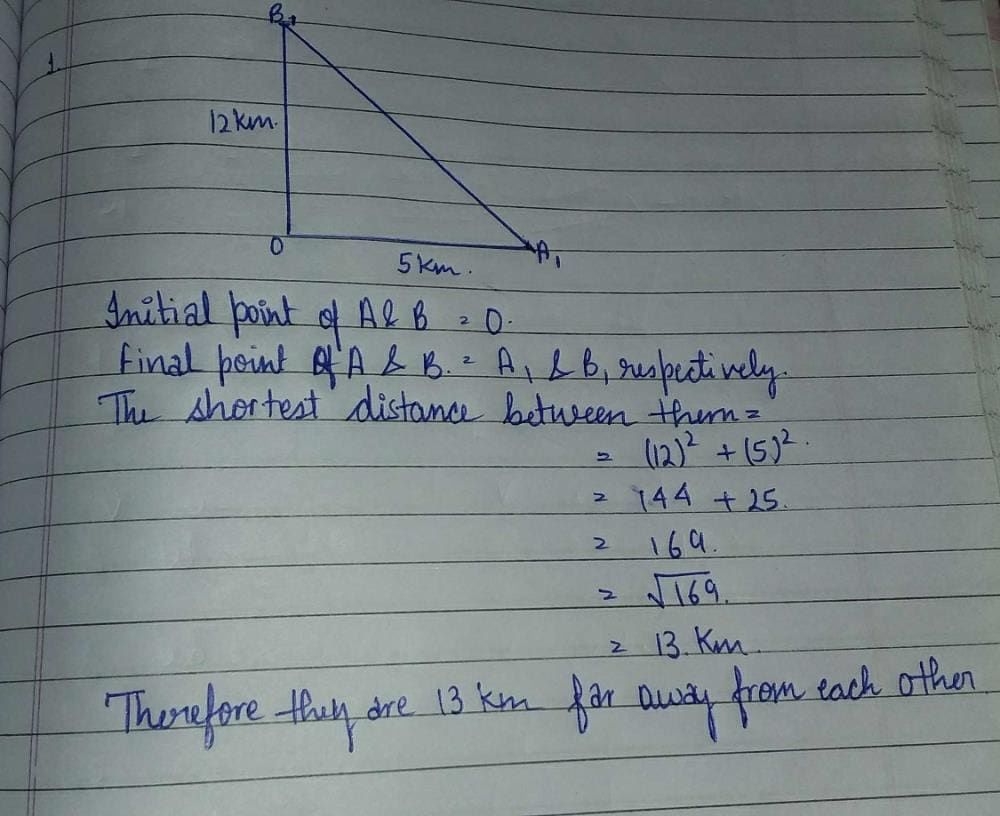 1.
B₁
12km.
O
A₁
5km.
Initial point of A & B = O.
Final point of A & B. = A₁ & B₁ respectively.
The shortest distance between them =
= (12)² + (5)².
= 144 + 25.
= 169.
= √169.
= 13. Km.
Therefore they are 13 km far away from each other